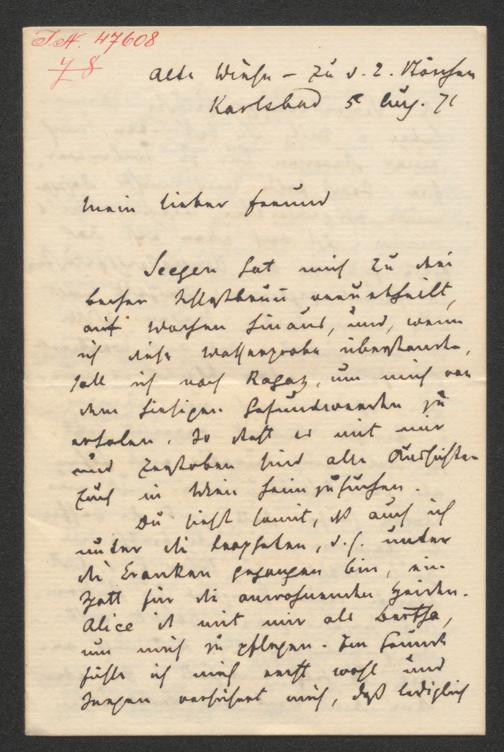 I.N. 47608
Alte Wiese – zu d. 2. Störchen
Karlsbad 5t Aug. 71
Mein lieber Freund
Seegen hat mich zu drei
Becher Schloßbrunn verurtheilt,
auf Wochen hinaus, und, wenn
ich diese Wasserprobe überstanden,
soll ich nach Ragaz, um mich von
dem hiesigen Gesundwerden zu
erholen. So steht es mit mir
und zerstoben sind alle Aussichten
Euch in Wien heimzusuchen.
Du siehst somit, daß auch ich
unter die Propheten, d.h. unter
die Kranken gegangen bin, ein
Spott für die anwohnenden Heiden.
Alice ist mit mir als Bertha,
um mich zu pflegen. Im Grunde
fühle ich mich recht wohl und
Seegen versichert mich, daß lediglich